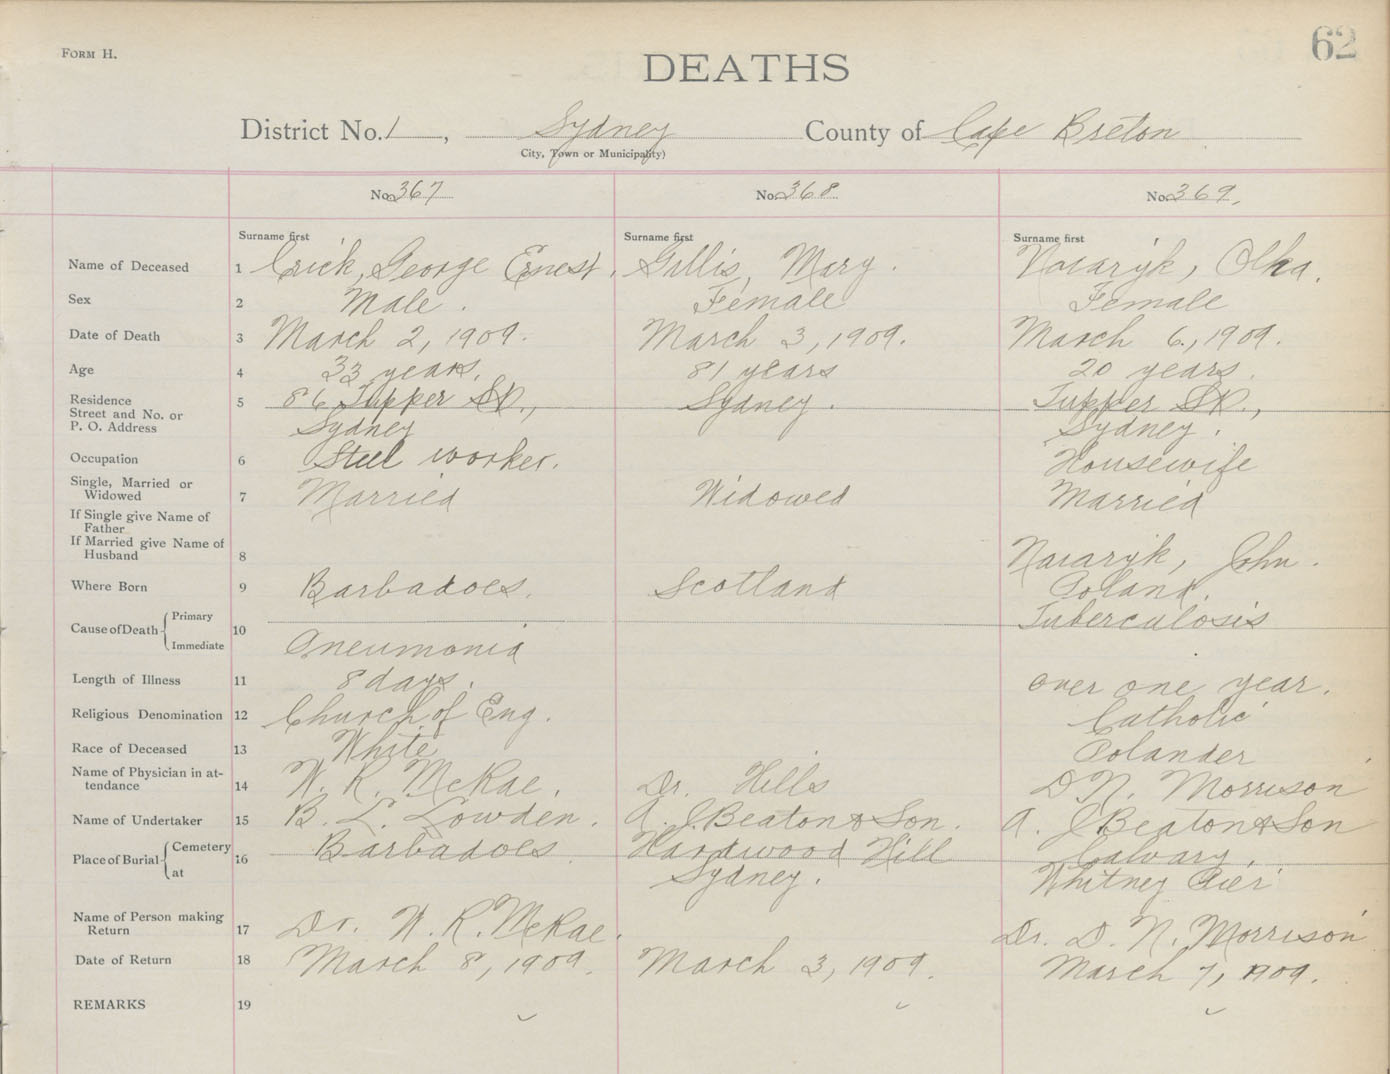 FORM H.
62
DEATHS
District No. 1, Sydney County of Cape Breton
City, Town or Municipality)
No. 367 No. 368 No. 369.
Surname first Surname first Surname first
Name of Deceased 1 Crick, George Ernest. Gillis, Mary. Olka.
Sex 2 Male. Female Female
Date of Death 3 March 2, 1909. March 3, 1909. March 6, 1909.
Age 4 33 years. 81 years 20 years.
Residence
Street and No. or 5 86 Tupper St., Sydney. Tupper St.,
P. O. Address Sydney Sydney.
Occupation 6 Steel worker. Housewife
Single, Married or
Widowed 7 Married Widowed Married
If Single give Name of
Father
If Married give Name of
Husband 8 John.
Where Born 9 Barbadoes. Scotland Poland.
Cause of Death Primary 10 Tuberculosis
Immediate Pneumonia
Length of Illness 11 8 days. over one year.
Religious Denomination 12 Church of Eng. Catholic
Race of Deceased 13 White Polander
Name of Physician in at-
tendance 14 W. R. McRae. Dr. Hills D. N. Morrison
Name of Undertaker 15 B. L. Lowden. A. J. Beaton & Son. A. J. Beaton & Son
Place of Burial Cemetery 16 Barbadoes. Hardwood Hill Calvary,
at Sydney. Whitney Pier
Name of Person making
Return 17 Dr. W. R. McRae. Dr. D. N. Morrison
Date of Return 18 March 8, 1909. March 3, 1909. March 7, 1909.
REMARKS 19